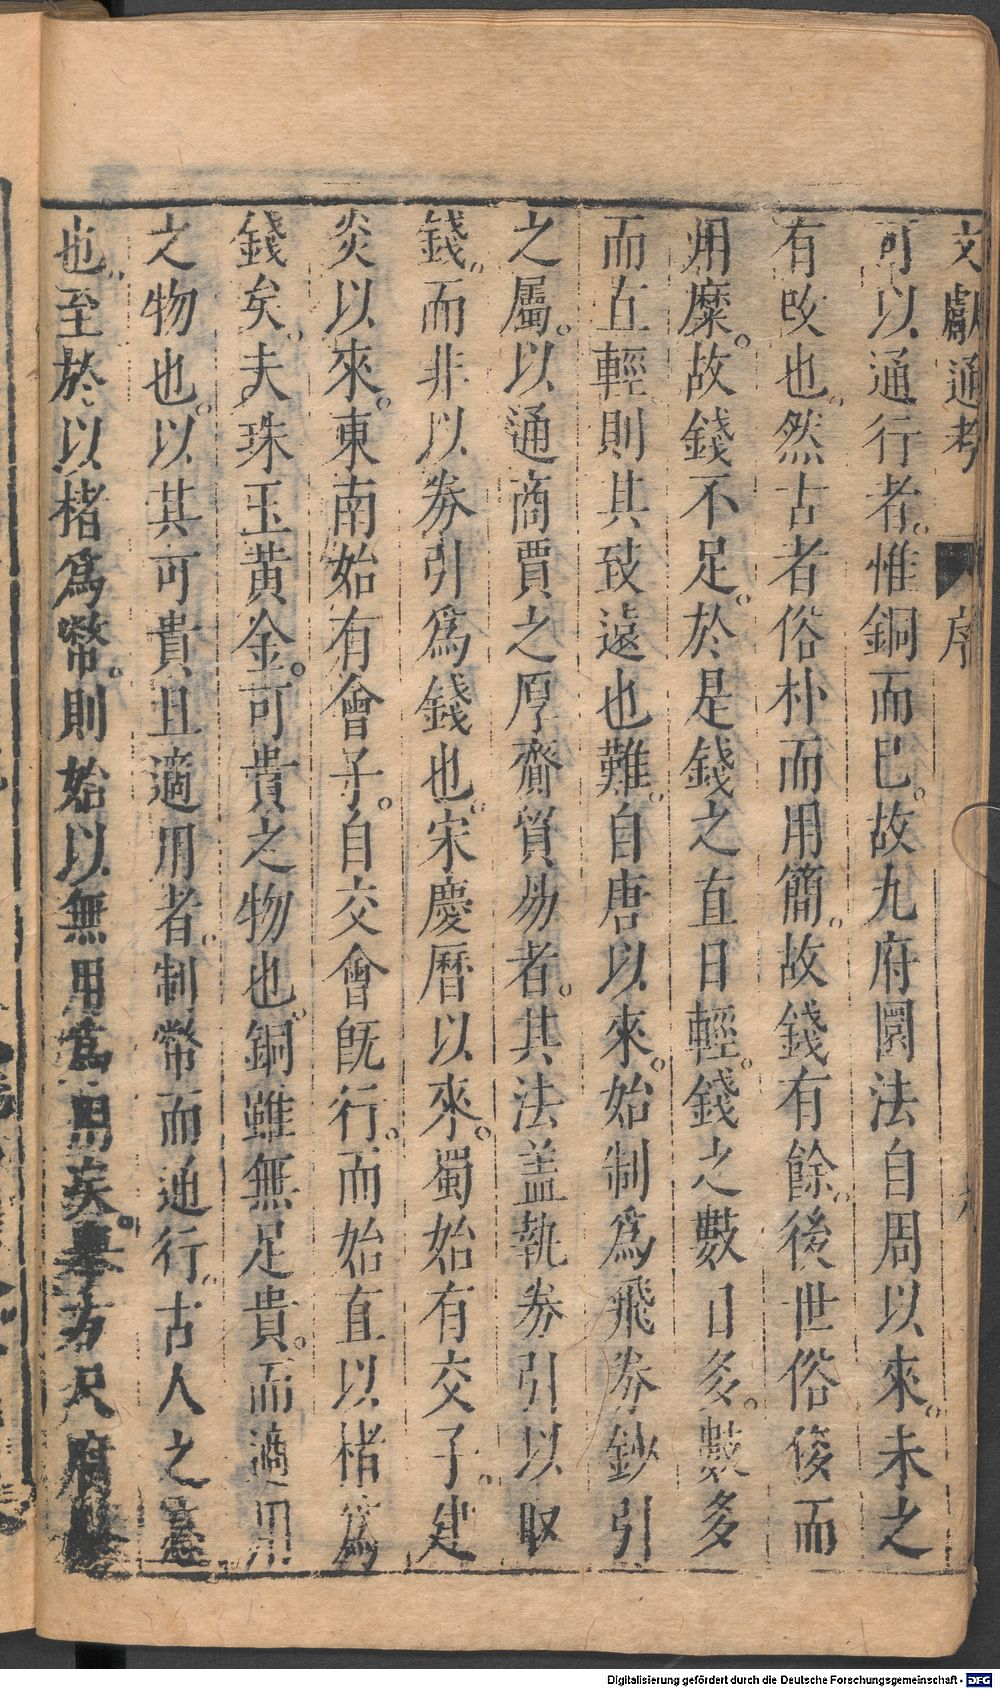 文獻通考 序 六
可以通行者。惟銅而已。故九府圜法自周以來。未之
有改也。然古者俗朴而用簡。故錢有餘。後世俗侈而
用糜。故錢不足。於是錢之直日輕。錢之數日多。數多
而直輕則其致遠也難。自唐以來。始制爲飛券鈔引
之屬。以通商賈之厚齎貿易者。其法盖執券引以取
錢。而非以券引爲錢也。宋慶曆以來。蜀始有交子。建
炎以來。東南始有會子。自交會旣行。而始直以楮爲
錢矣。夫珠玉黃金。可貴之物也。銅雖無足貴。而適用
之物也。以其可貴且適用者。制幣而通行。古人之意
也。至於以楮爲幣。則始以無用爲用矣。舉方尺腐
Digitalisierung gefördert durch die Deutsche Forschungsgemeinschaft - DFG